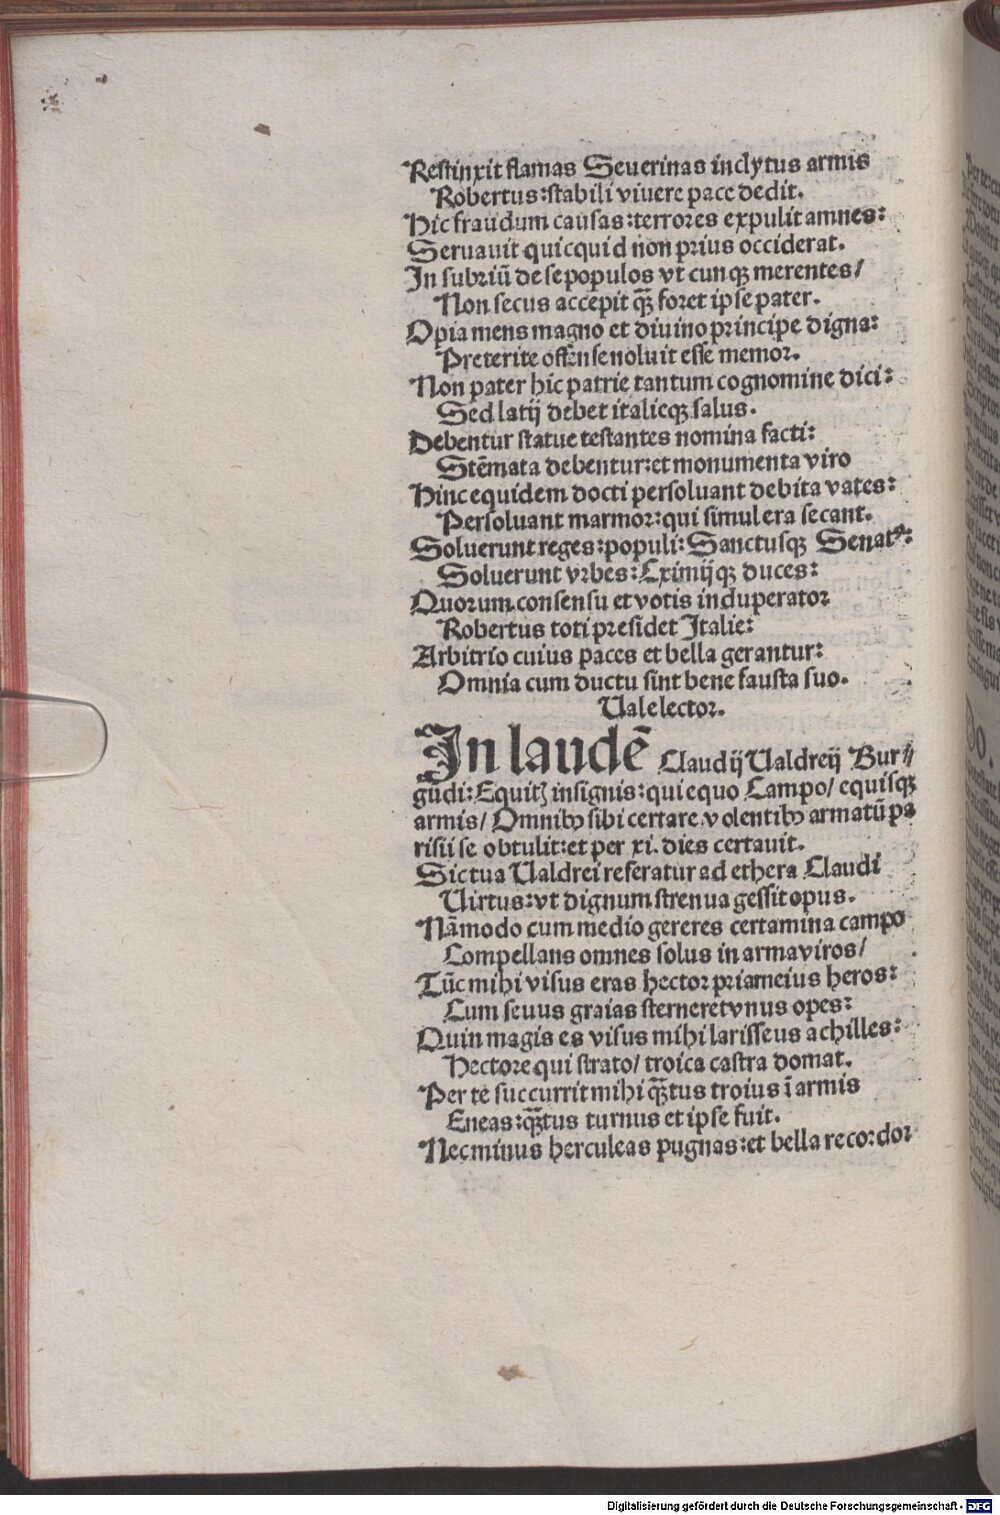 Restinxit flamas Seuerinas inclytus armis
Robertus:stabili viuere pace dedit.
Hic fraudum causas:terrores expulit amnes:
Seruauit quicquid non prius occiderat.
In subriū de se populos vt cunqꝫ merentes/
Non secus accepit qꝫ̄ foret ipse pater.
O pia mens magno et diuino principe digna:
Preterite offense noluit esse memor.
Non pater hic patrie tantum cognomine dici:
Sed latij debet italieqꝫ salus.
Debentur statue testantes nomina facti:
Stēmata debentur:et monumenta viro
Hinc equidem docti persoluant debita vates:
Persoluant marmor:qui simul era secant.
Soluerunt reges:populi:Sanctusqꝫ Senatꝰ:
Soluerunt vrbes:Eximijqꝫ duces:
Quorum consensu et votis induperator
Robertus toti presidet Italie:
Arbitrio cuius paces et bella gerantur:
Omnia cum ductu sint bene fausta suo.
Uale lector.
In laudē Claudij Ualdreij Bur//
gūdi:Equitꝭ insignis:qui equo Campo/ equisqꝫ
armis/ Omnibꝰ sibi certare volentibꝰ armatū pa
risii se obtulit:et per xi. dies certauit.
Sic tua Ualdrei referatur ad ethera Claudi
Uirtus:vt dignum strenua gessit opus.
Nā modo cum medio gereres certamina campo
Compellans omnes solus in arma viros/
Tūc mihi visus eras hector priameius heros:
Cum seuus graias sterneret vnus opes:
Quin magis es visus mihi larisseus achilles:
Hectore qui strato/ troica castra domat.
Per te succurrit mihi qꝫ̄tus troius ī armis
Eneas:qꝫ̄tus turnus et ipse fuit.
Nec minus herculeas pugnas:et bella recordor
Digitalisierung gefördert durch die Deutsche Forschungsgemeinschaft - DFG